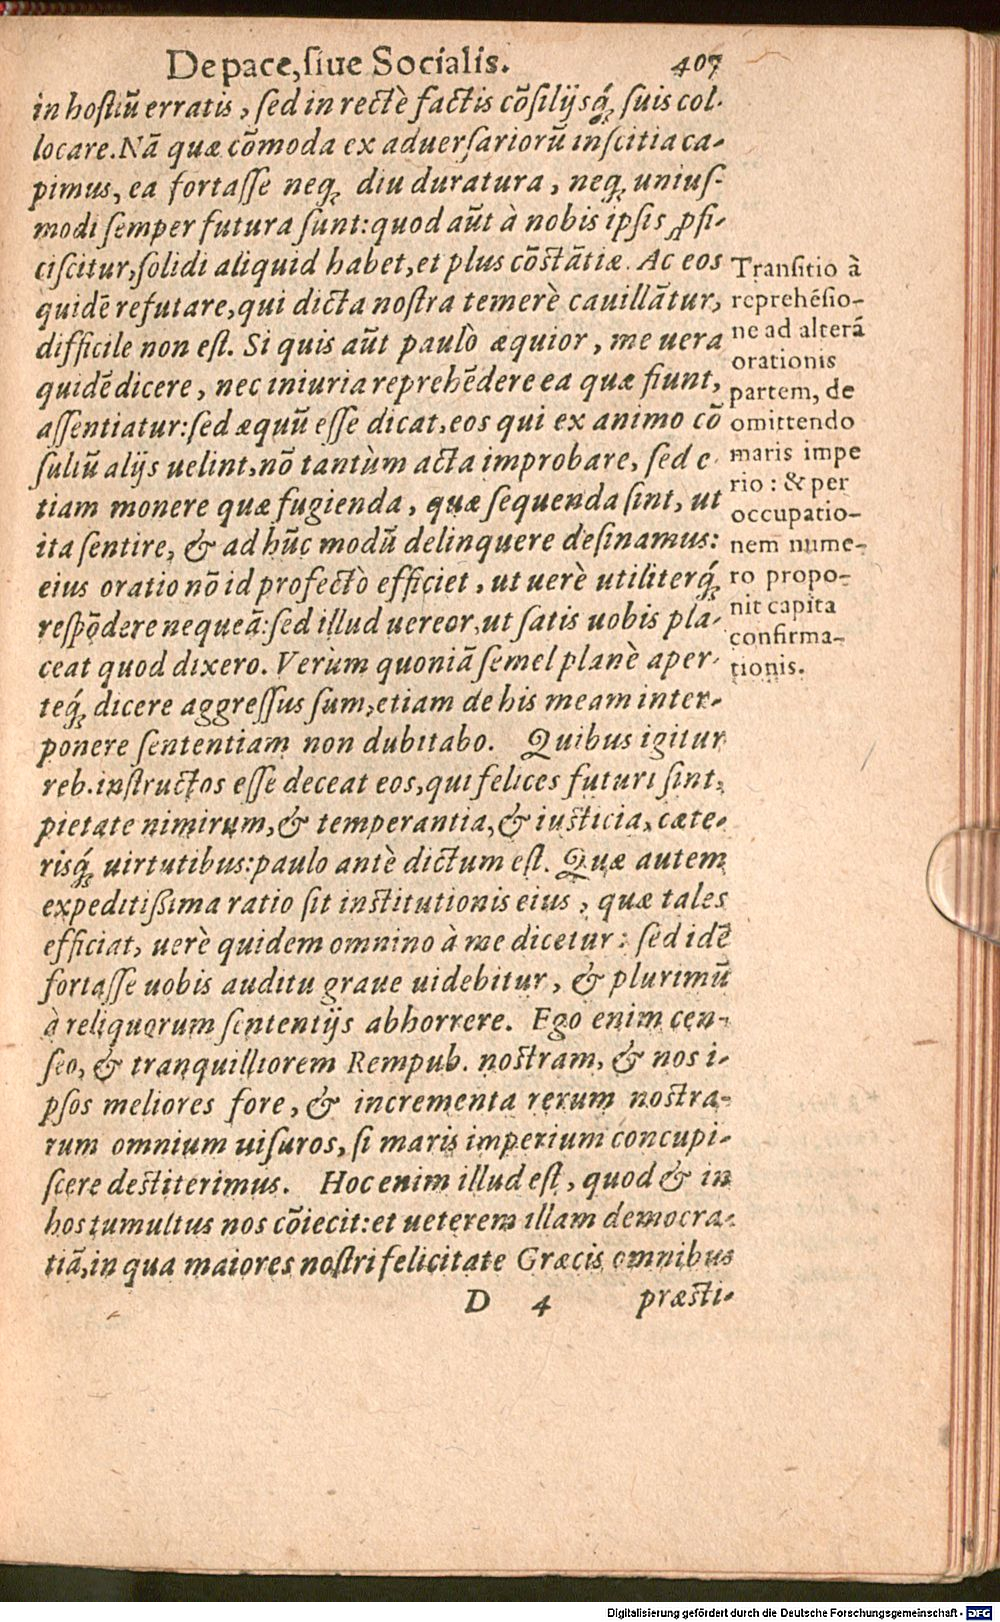 De pace, ſiue Socialis. 407
in hoſtiũ erratis, ſed in rectè factis cõſilijsq́ꝫ ſuis col-
locare. Nã quæ cõmoda ex aduerſariorũ inſcitia ca-
pimus, ea fortaſſe neqꝫ diu duratura, neqꝫ uniuſ-
modi ſemper futura ſunt: quod aũt à nobis ipſis ꝓfi-
ciſcitur, ſolidi aliquid habet, et plus cõſtãtiæ. Ac eos
quidẽ refutare, qui dicta noſtra temerè cauillãtur,
difficile non eſt. Si quis aũt paulò æquior, me uera
quidẽ dicere, nec iniuria reprehẽdere ea quæ fiunt,
aſſentiatur: ſed æquũ eſſe dicat, eos qui ex animo cõ
ſuliũ alijs uelint, nõ tantùm acta improbare, ſed e-
tiam monere quæ fugienda, quæ ſequenda ſint, ut
ita ſentire, & ad hũc modũ delinquere deſinamus:
eius oratio nõ id profectò efficiet, ut uerè utiliterq́ꝫ
reſpõdere nequeã: ſed illud uereor, ut ſatis uobis pla-
ceat quod dixero. Verùm quoniã ſemel planè aper-
teq́ꝫ dicere aggreſſus ſum, etiam de his meam inter-
ponere ſententiam non dubitabo. Quibus igitur
reb. inſtructos eſſe deceat eos, qui felices futuri ſint,
pietate nimirum, & temperantia, & iuſticia, cæte-
risq́ꝫ uirtutibus: paulo antè dictum eſt. Quæ autem
expeditiſsima ratio ſit inſtitutionis eius, quæ tales
efficiat, uerè quidem omnino à me dicetur: ſed idẽ
fortaſſe uobis auditu graue uidebitur, & plurimũ
à reliquorum ſententijs abhorrere. Ego enim cen-
ſeo, & tranquilliorem Rempub. noſtram, & nos i-
pſos meliores fore, & incrementa rerum noſtra-
rum omnium uiſuros, ſi maris imperium concupi-
ſcere deſtiterimus. Hoc enim illud eſt, quod & in
hos tumultus nos cõiecit: et ueterem illam democra-
tiã, in qua maiores noſtri felicitate Græcis omnibus
D 4 præſti-
Tranſitio à
reprehẽſio-
ne ad alterã
orationis
partem, de
omittendo
maris impe
rio: & per
occupatio-
nem nume-
ro propo-
nit capita
confirma-
tionis.
Digitalisierung gefördert durch die Deutsche Forschungsgemeinschaft - DFG